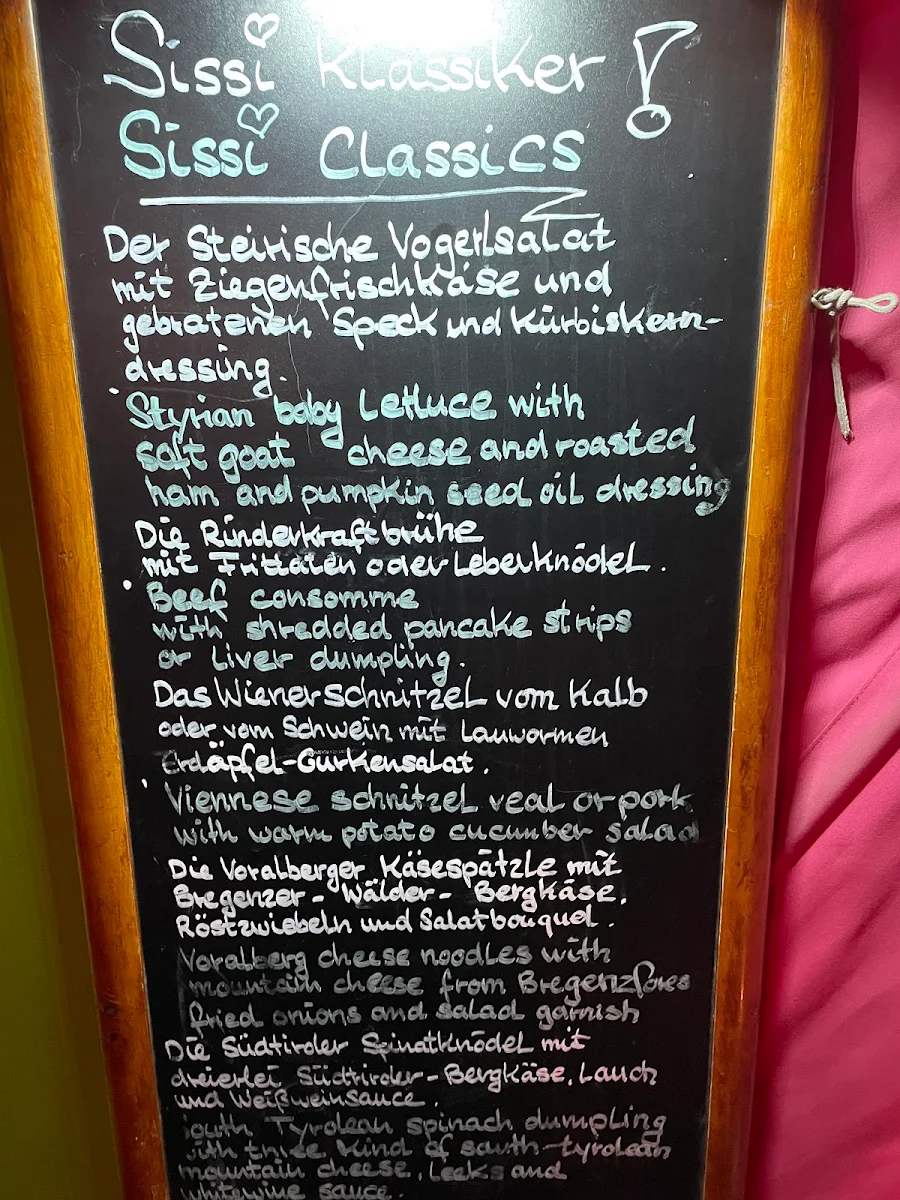 Sissi Klassiker !
Sissi Classics
Der Steirische Vogerlsalat
mit Ziegenfrischkäse und
gebratenen Speck und Kürbiskern-
dressing.
Styrian baby Lettuce with
soft goat cheese and roasted
ham and pumpkin seed oil dressing
Die Rinderkraftbrühe
mit Frittaten oder Leberknödel.
Beef consomme
with shredded pancake strips
or liver dumpling.
Das Wienerschnitzel vom Kalb
oder vom Schwein mit Lauwarmen
Erdäpfel-Gurkensalat.
Viennese schnitzel veal or pork
with warm potato cucumber salad
Die Voralberger Käsespätzle mit
Bregenzer - Wälder - Bergkäse,
Röstzwiebeln und Salatbouquet.
Voralberg cheese noodles with
mountain cheese from
fried onions and salad garnish
Die Südtiroler Spinatknödel mit
dreierlei Südtiroler-Bergkäse, Lauch
und Weißweinsauce.
South Tyrolean spinach dumpling
with kind of south-tyrolean
mountain cheese, Leeks and
whitewine sauce.